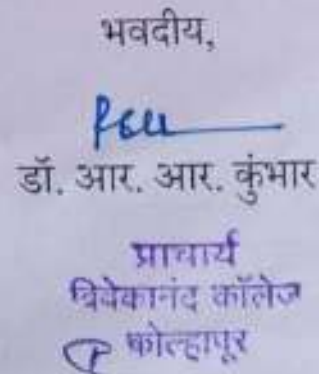 भवदीय,
डॉ. आर. आर. कुंभार
प्राचार्य
विवेकानंद कॉलेज
कोल्हापूर